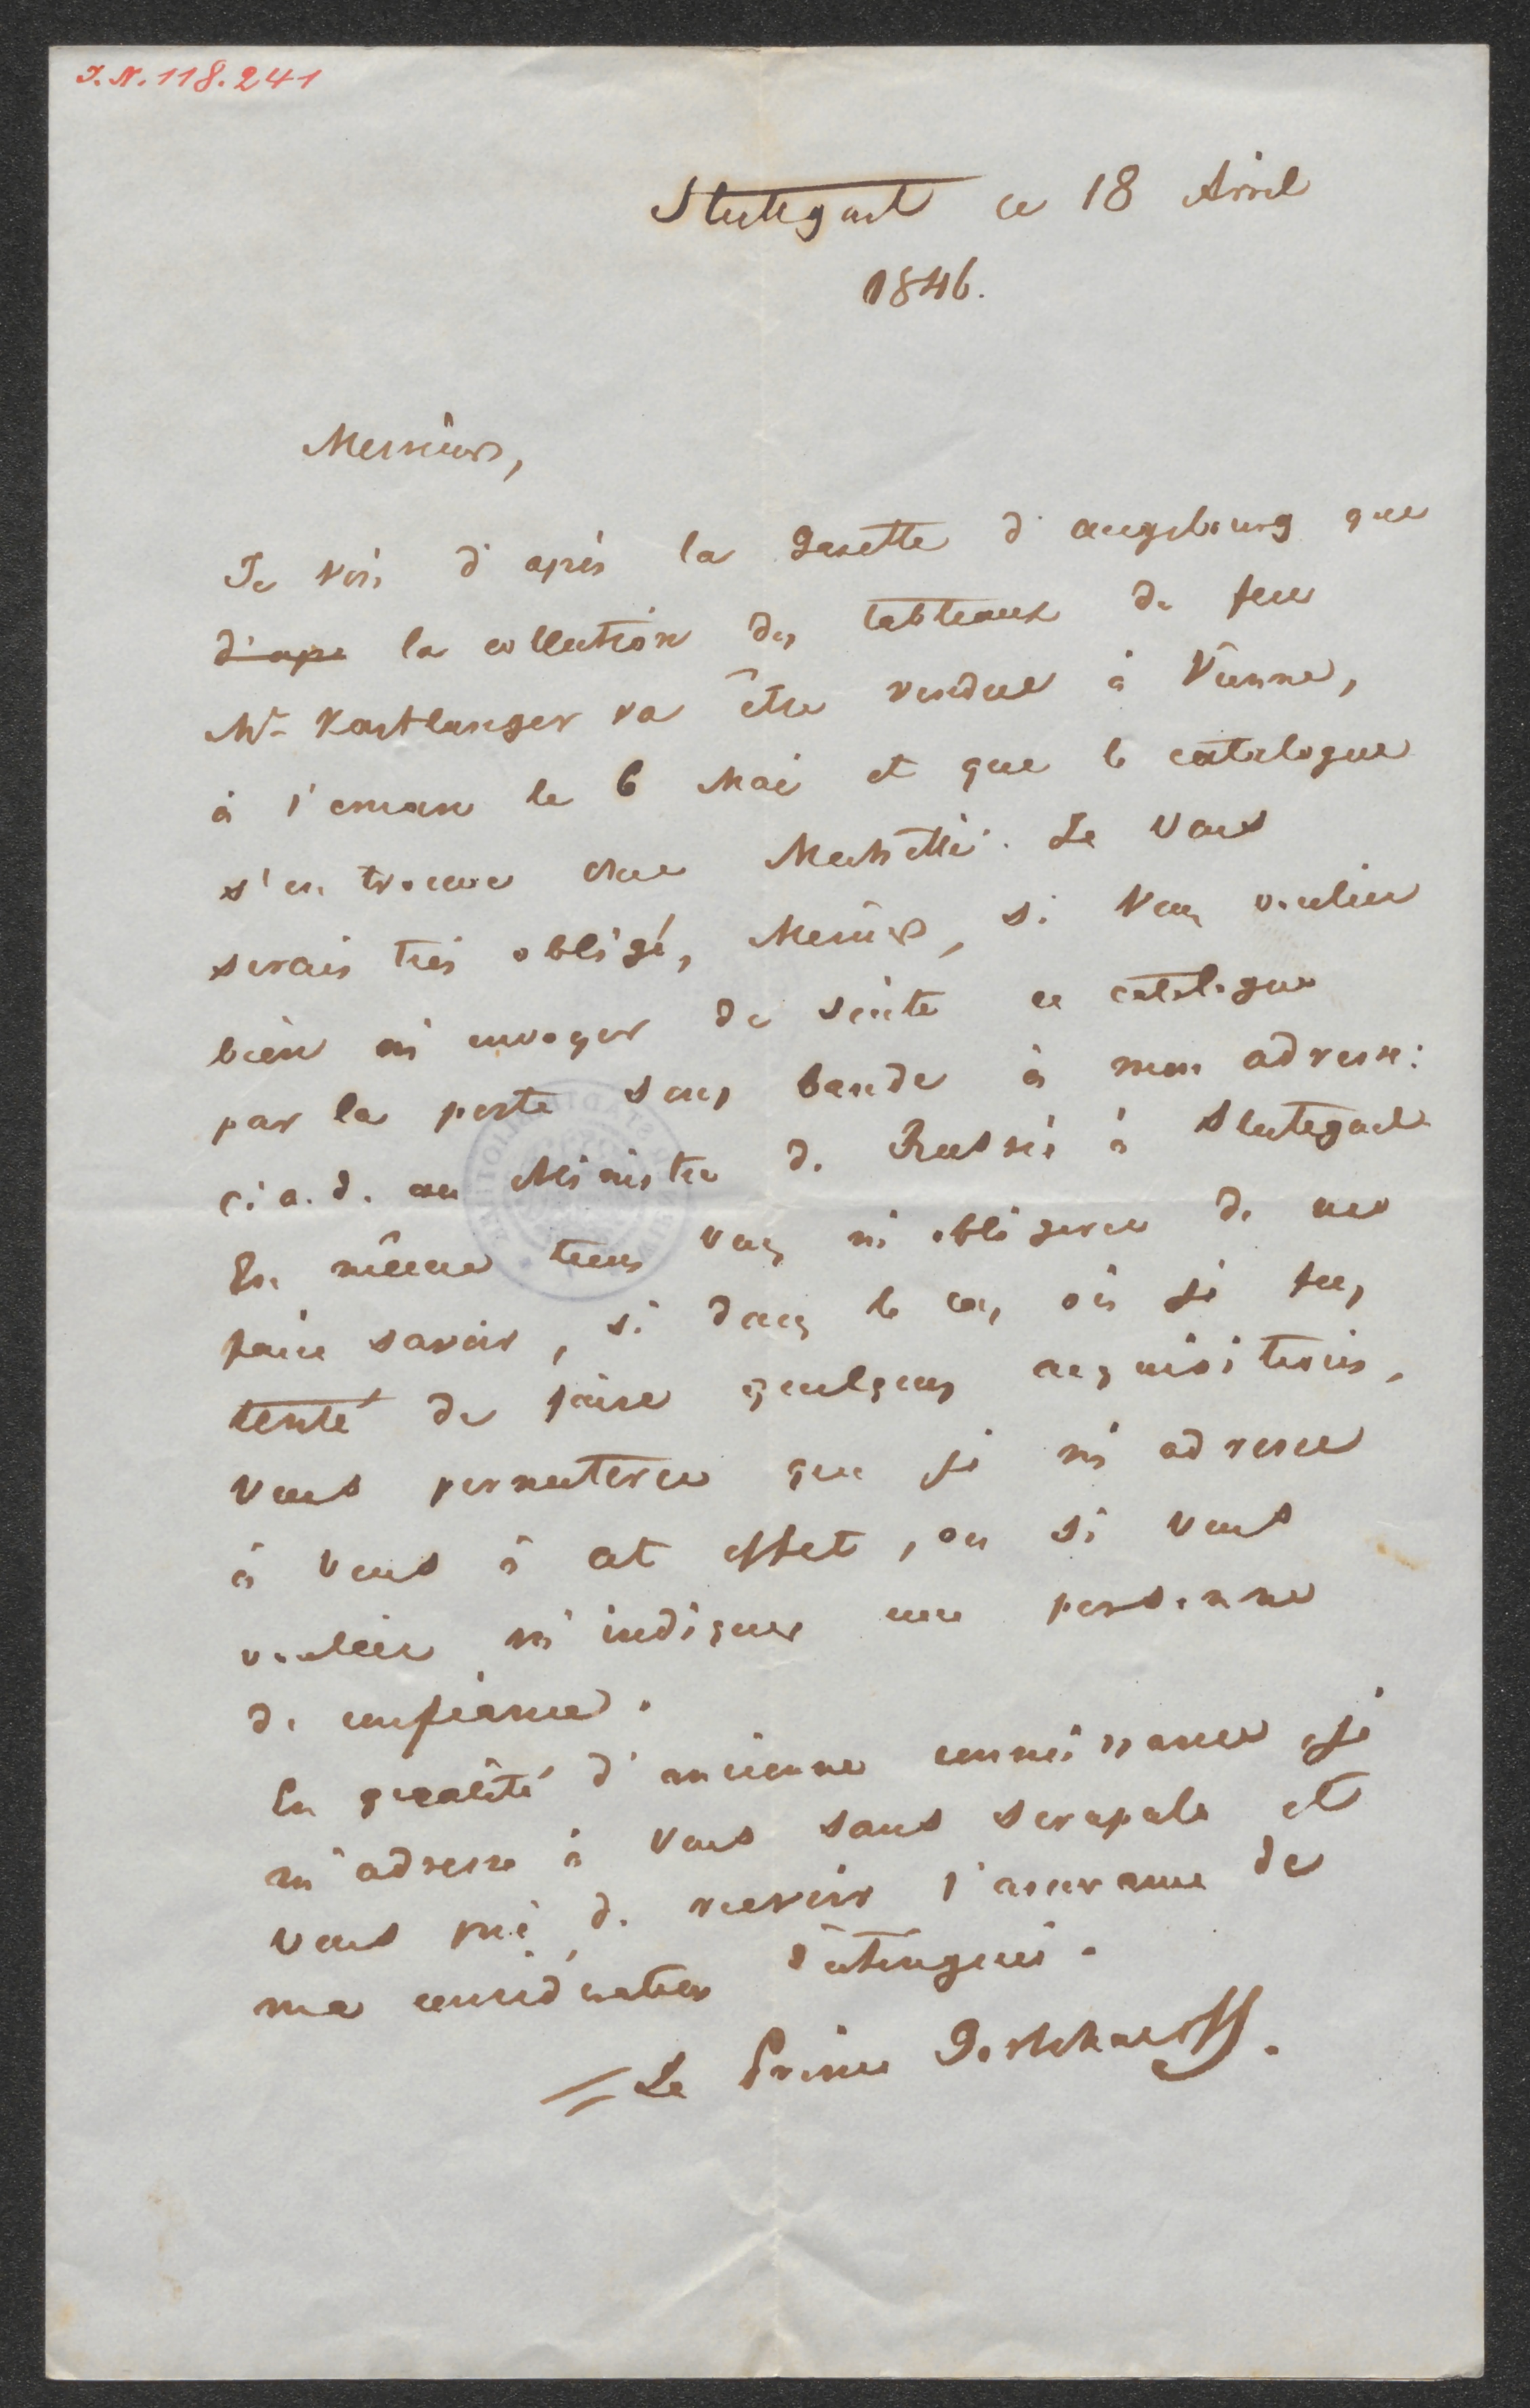 I. N. 118.241
Stuttgart ce 18 Avril
1846.
Messieurs,
Je vois d'après la Gazette d'Augsbourg que
d'apr la collection des tableaux de feu
Mr. va être vendue à Vienne,
à l'encan le 6 Mai et que le catalogue
s'en trouve chez. Je vous
serais très obligé, Messieurs, si vous vouliez
bien m'envoyer de suite ce catalogue
par la poste sous bande à mon adresse:
c. a. d. au Ministre de Russie à Stuttgart
En même tems vous m'obligerez de me
faire savoir, si dans le cas, où je fus
tenté de faire quelques acquisitions,
vous permetterez que je m'adresse
à vous à cet effet, ou si vous
vouliez m'indiquer une personne
de confiance.
En qualité d'ancienne connaissance je
m'adresse à vous sans scrupule et
vous prie de recevoir l'assurance de
ma considération distinguée.
Le Prince Gortchacoff.